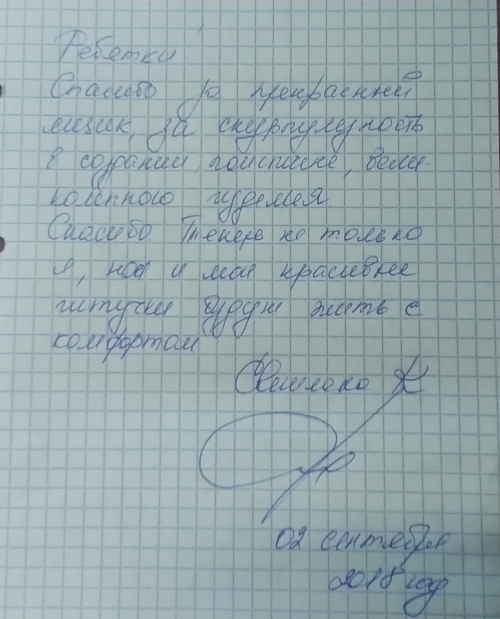 Ребятки!
Спасибо за прекрасный
ящик, за скурпулузность
в создании, поистине, вели
колепного изделия.
Спасибо. Теперь не только
я, но и мои красивые
штучки будут жить с
комфортом
К
02 сентября
2018 год